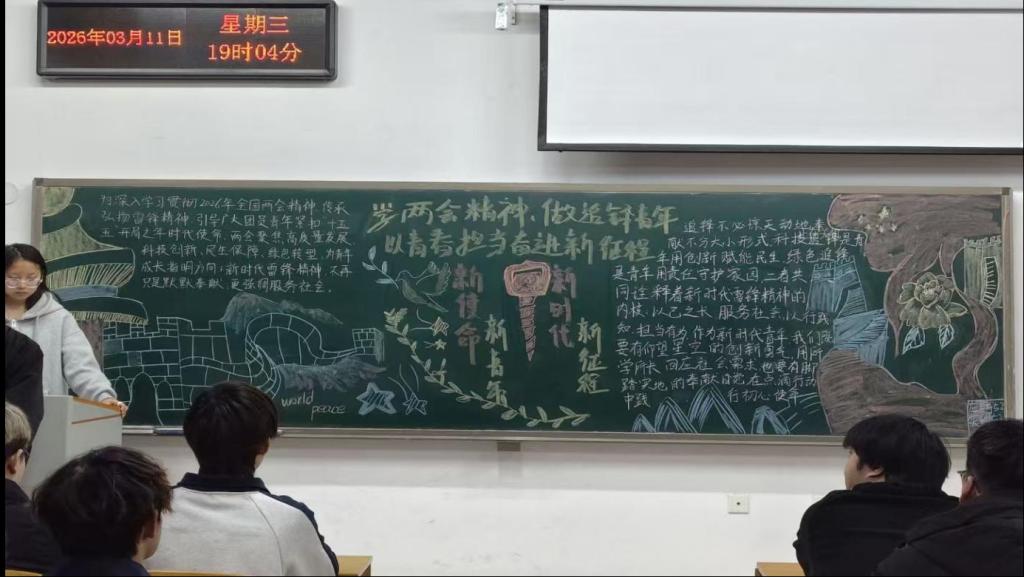 2026年03月11日
星期三
19时04分
为深入学习贯彻2026年全国两会精神 传承
弘扬雷锋精神 引导广大团员青年紧扣“十五
五”开局之年时代使命 两会聚焦高质量发展
科技创新、民生保障、绿色转型 为青年
成长指明方向；新时代雷锋精神 不再
只是默默奉献 更强调服务社会。
学两会精神、做追锋青年
以青春担当奋进新征程
新使命
新青年
新时代
新征程
world
peace
追锋不必惊天动地 奉
献不分大小形式 科技追锋是青
年用创新赋能民生 绿色追锋
是青年用责任守护家园 二者共
同诠释着新时代雷锋精神的
内核：以己之长 服务社会；以行践
知 担当有为 作为新时代青年 我们
要有仰望星空的创新勇气 用所
学所长 回应社会需求 也要有脚
踏实地的奉献自觉 在点滴行动
中践行初心使命